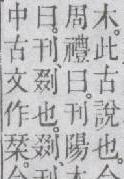 木。此古說也。
周禮曰。刊陽木
曰。刊、剟也。剟、刊
中古文作栞。今